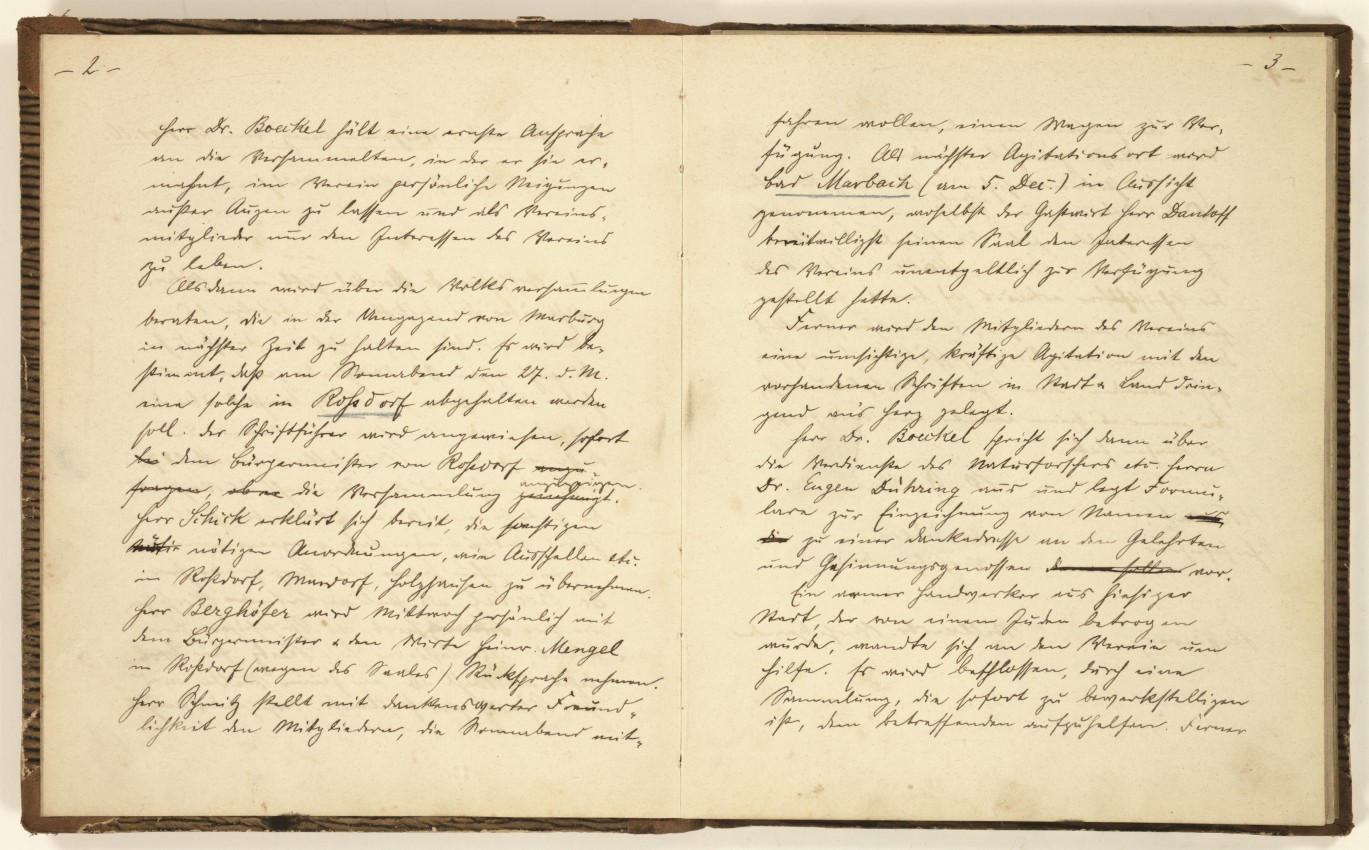 - 2 -
Herr Dr. Boeckel hält eine ernste Ansprache
an die Versammelten, in der er sie er-
mahnt, im Verein persönliche Neigungen
außer Augen zu lassen und als Vereins-
mitglieder nur den Interessen des Vereins
zu leben.
Alsdann wird über die Volksversam̅lungen
beraten, die in der Umgegend von Marburg
in nächster Zeit zu halten sind. Es wird be-
stimmt, daß am Sonnabend den 27. d. M.
eine solche in Roßdorf abgehalten werden
soll. Der Schriftführer wird angewiesen, sofort
bei dem Bürgermeister von Roßdorf anzu
fragen, ober die Versammlung genehmigt.
anzuzeigen.
Herr Schick erklärt sich bereit, die sonstigen
nötigen Anordnungen, wie Ausschellen etc.
in Roßdorf, Mardorf, Holzhausen zu übernehmen.
Herr Berghöfer wird Mittwoch persönlich mit
dem Bürgermeister & den Wirte Heinr. Mengel
in Roßdorf (wegen des Saales) Rücksprache nehmen.
Herr Schmitz stellt mit dankenswerter Freund-
lichkeit den Mitgliedern, die Sonnabend mit-
- 3 -
fahren wollen, einen Wagen zur Ver-
fügung. Als nächster Agitationsort wird
Bad Marbach (am 5. Dec.) in Aussicht
genommen, woselbst der Gastwirt Herr Dantoff
bereitwilligst seinen Saal den Interessen
des Vereins unentgeltlich zur Verfügung
gestellt hatte.
Ferner wird den Mitgliedern des Vereins
eine umsichtige, kräftige Agitation mit den
vorhandenen Schriften in Stadt & Land drin-
gend an's Herz gelegt.
Herr Dr. Boeckel spricht sich dann über
die Verdienste des Naturforschers etc. Herrn
Dr. Eugen Dühring aus und legt Formu-
lare zur Einzeichnung von Namen aus
die zu einer Dankadresse an den Gelehrten
und Gesinnungsgenossen vor.
Ein armer Handwerker aus hiesiger
Stadt, der von einem Juden betrogen
wurde, wandte sich an den Verein um
Hilfe. Es wird beschlossen, durch eine
Sammlung, die sofort zu bewerkstelligen
ist, dem betreffenden aufzuhelfen. Ferner